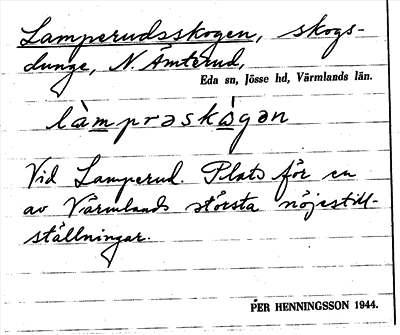 Lamperudsskogen, skogs-
dunge, N. Ämterud,
Eda sn, Jösse hd, Värmlands län.
làmprəskógən
Vid Lamperud. Plats för en
av Värmlands största nöjestill-
ställningar.
PER HENNINGSSON 1944.